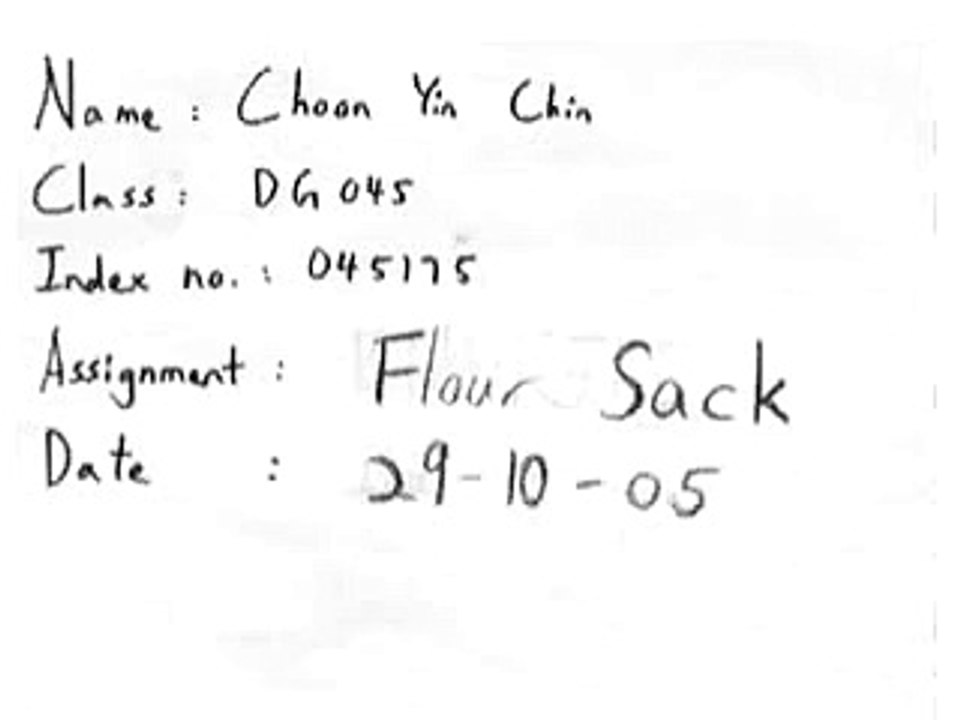 Name : Choon Yin Chin
Class : DG 045
Index no. : 045175
Assignment : Flour Sack
Date : 29-10-05